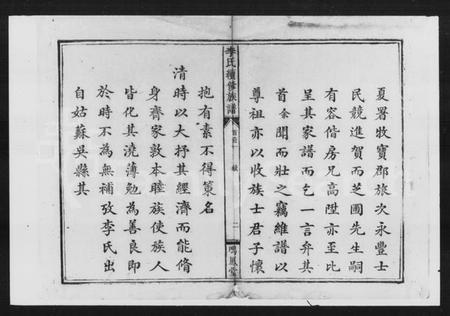 夏署牧寳郡旅次永豊士
民競進賀而芝圃先生嗣
有容偕房兄高陞亦至比
呈其家譜而乞一言弁其
首余聞而壯之竊維譜以
尊祖亦以收族士君子懷
李氏續修族譜
首卷
二
鳴鳳堂
抱有素不得策名
清時以大抒其經濟而能脩
身齊家敦本睦族使族人
皆化其澆薄勉為善良即
於時不為無補攷李氏出
自姑蘇吳縣其